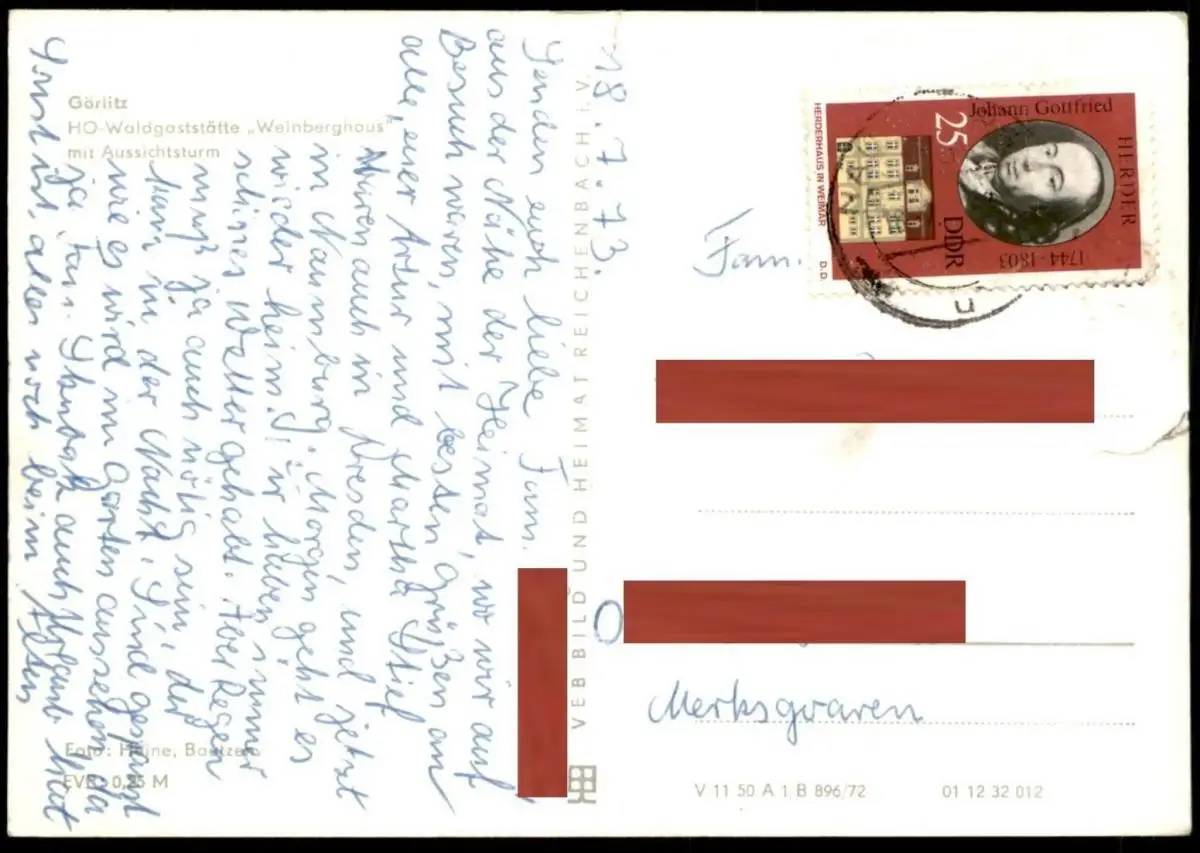 Görlitz
HO-Waldgaststätte „Weinberghaus"
mit Aussichtsturm
18.7.73.
Senden euch liebe Fam.
aus der Nähe der Heimat, wo wir auf
Besuch waren, mit besten Grüßen an
alle, euer Artur und Martha Stief
Waren auch in Dresden, und jetzt
in Naumburg. Morgen geht es
wieder heim. Wir haben immer
schönes Wetter gehabt. Aber Regen
muß ja auch nötig sein, der
kam in der Nacht. Sind gespannt
wie es wird im Garten aussehen, da
ja Fam. auch Urlaub hat
Sonst ist alles noch beim Alten
Foto: Heine, Bautzen
EVP 0,25 M
VEB BILD UND HEIMAT REICHENBACH I. V.
Johann Gottfried
HERDER
1744-1803
25
DDR
HERDERHAUS IN WEIMAR
D.D
Fam.
O
Merksgvaren
V 11 50 A 1 B 896/72
01 12 32 012